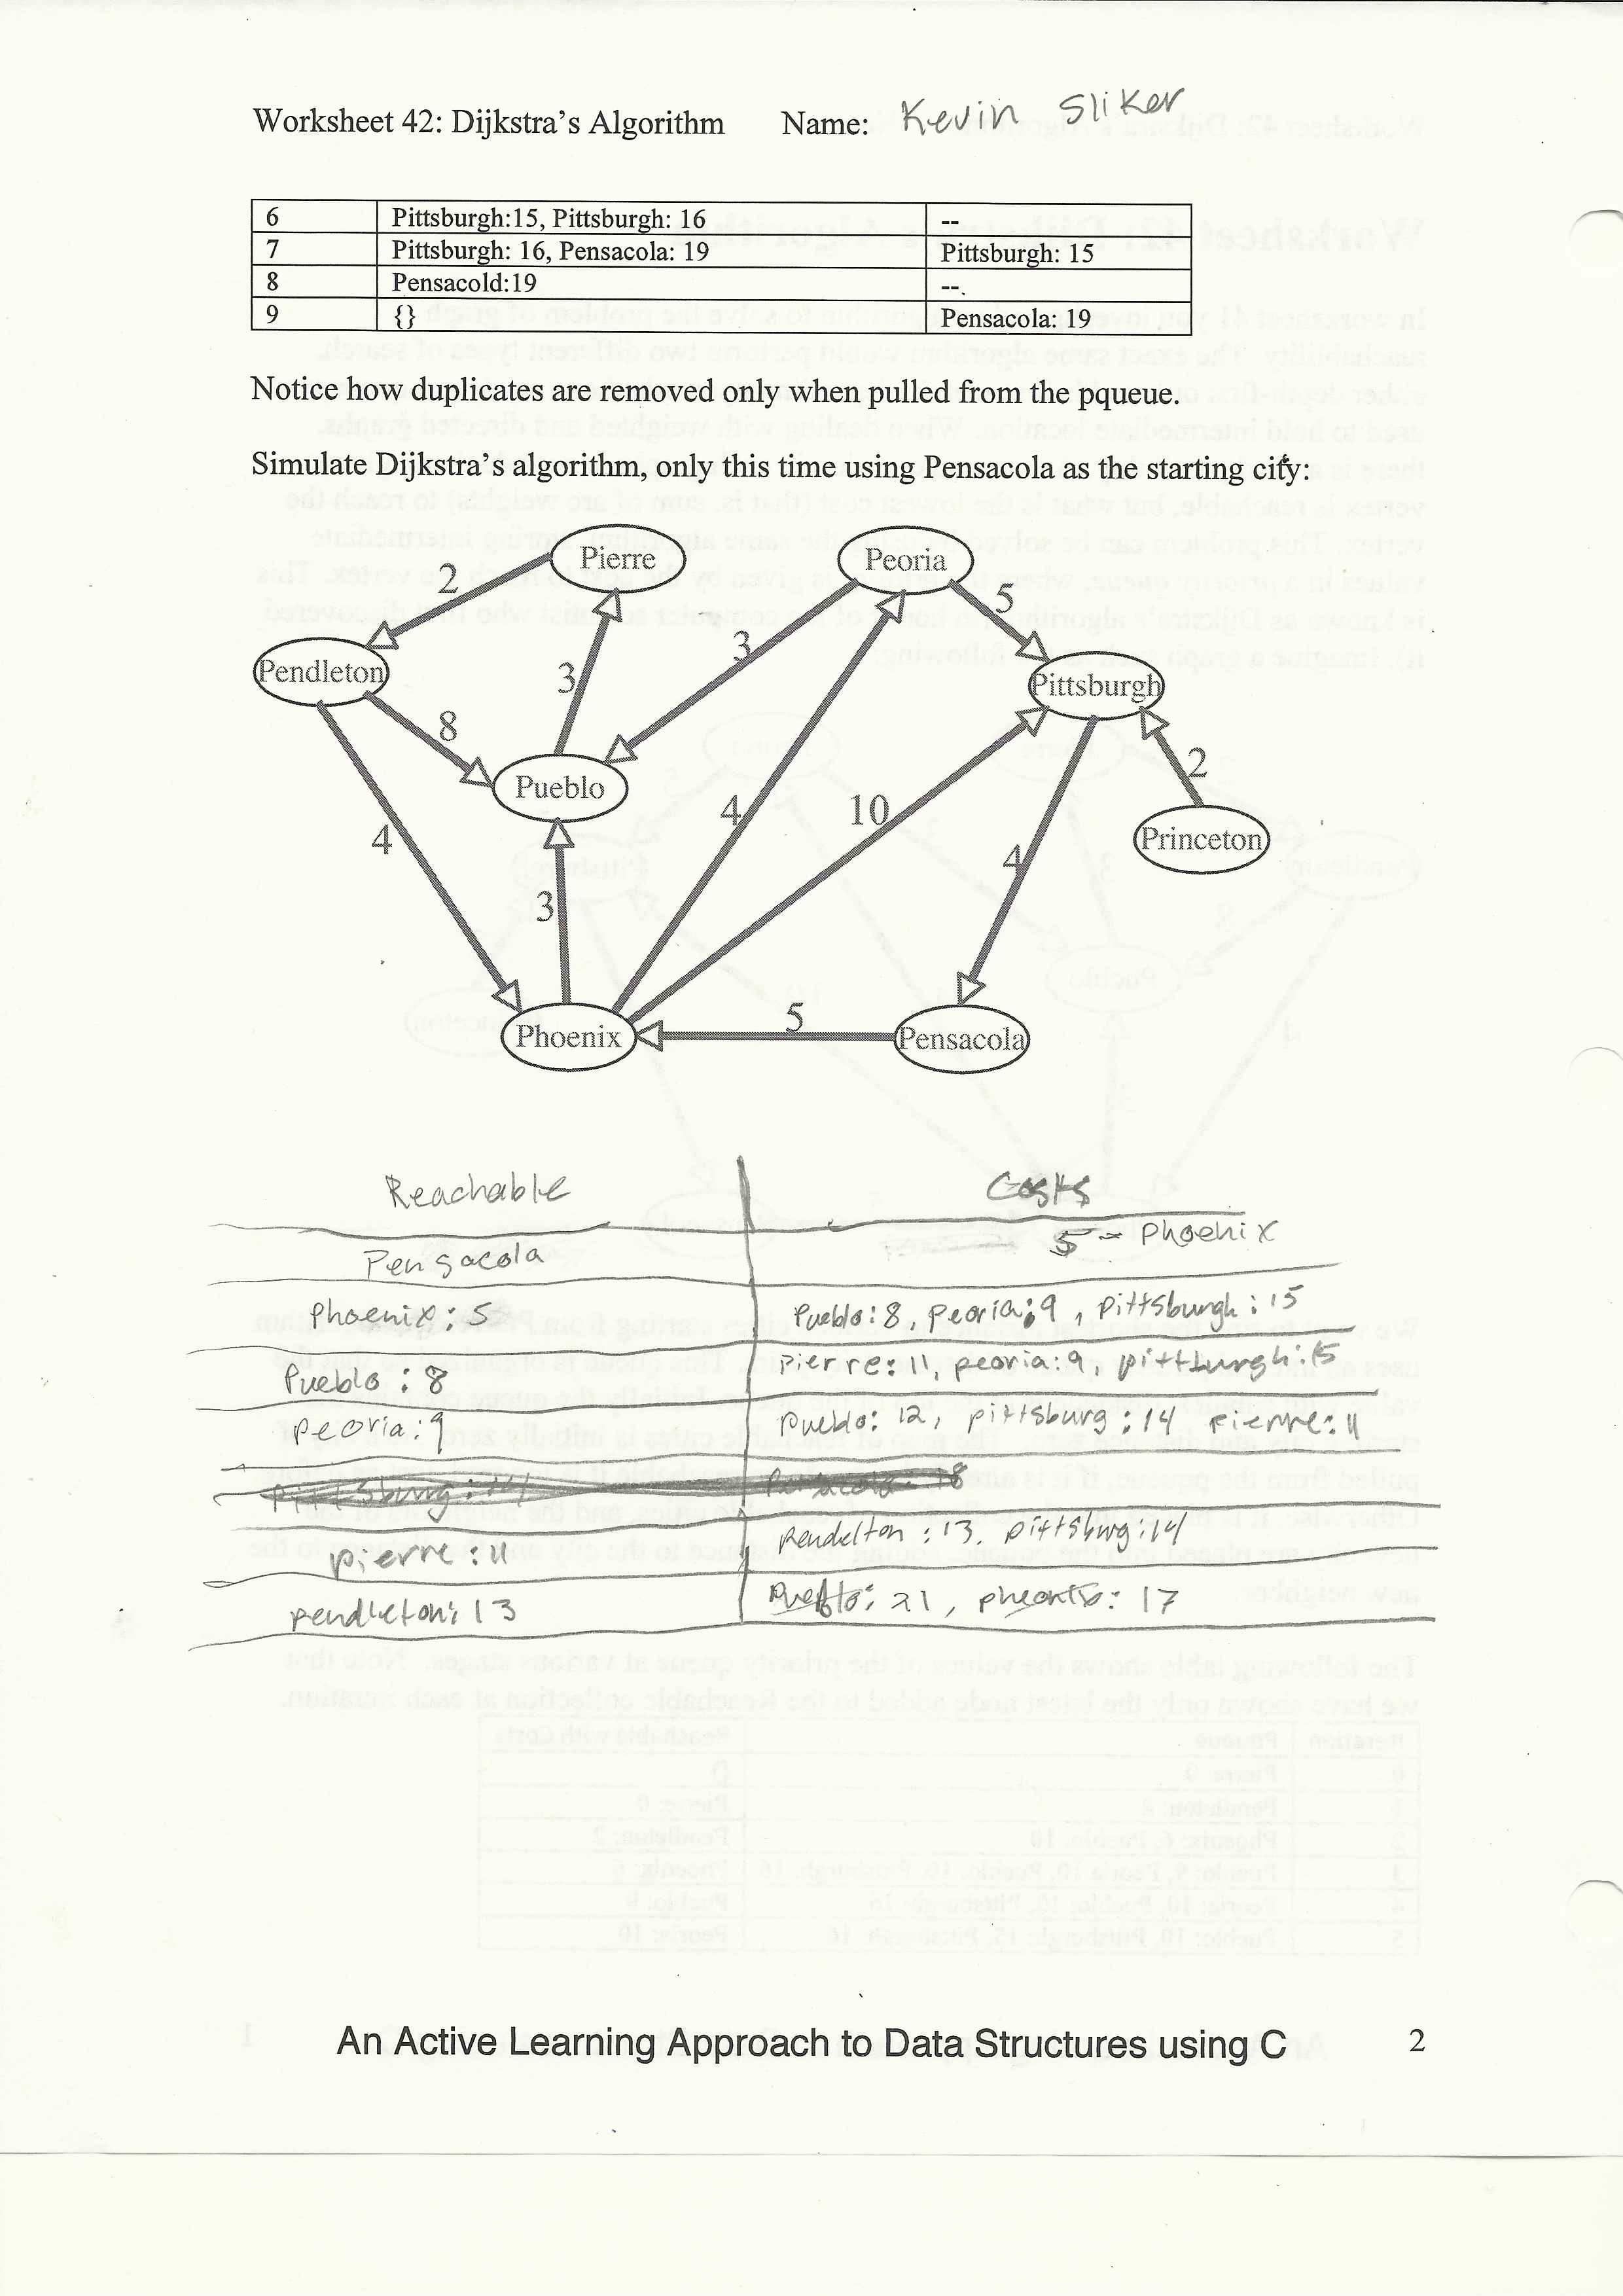 Worksheet 42: Dijkstra's Algorithm Name: Kevin Sliker
6 Pittsburgh:15, Pittsburgh: 16 --
7 Pittsburgh: 16, Pensacola: 19 Pittsburgh: 15
8 Pensacold:19 --
9 {} Pensacola: 19
Notice how duplicates are removed only when pulled from the pqueue.
Simulate Dijkstra's algorithm, only this time using Pensacola as the starting city:
Pierre Peoria
2 5
3
Pendleton 3 Pittsburgh
8
2
Pueblo
4 10
4 Princeton
4
3
5
Phoenix Pensacola
Reachable Costs
Pensacola 5 - Phoenix
Phoenix: 5 Pueblo: 8, peoria: 9, pittsburgh: 15
Pueblo: 8 Pierre: 11, peoria: 9, pittburgh: 15
peoria: 9 pueblo: 12, pittsburg: 14 pierre: 11
pittsburg: 14 18
pierre: 11 pendelton: 13, pittsburg: 14
pendleton: 13 Pueblo: 21, : 17
An Active Learning Approach to Data Structures using C 2